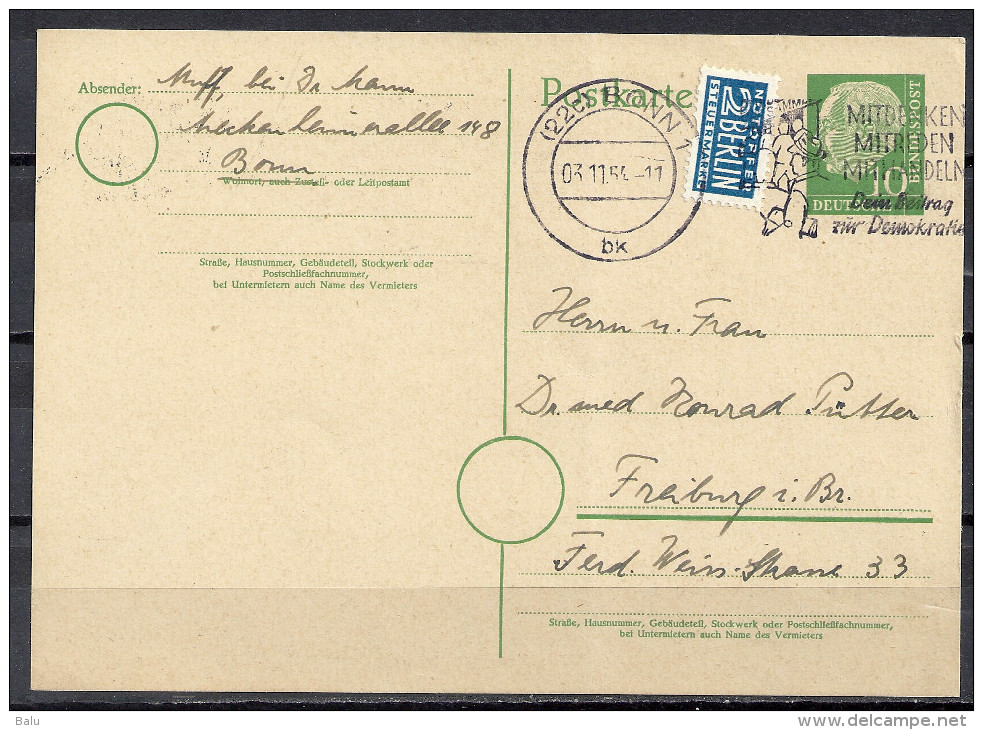 Absender: Muff, bei Dr. Mann
Meckenheimerallee 148
Bonn
Wohnort, auch Zustell- oder Leitpostamt
Straße, Hausnummer, Gebäudeteil, Stockwerk oder
Postschließfachnummer,
bei Untermietern auch Name des Vermieters
Postkarte
(22c) BONN 1
03.11.54.-11
bk
NOTOPFER
2 BERLIN
STEUERMARKE
MITDENKEN
MITREDEN
MITHANDELN
Dein Beitrag
zur Demokratie
10
DEUTSCHE
BUNDESPOST
Herrn u. Frau
Dr. med Konrad Pütter
Freiburg i. Br.
Ferd. Weiss-Strasse 33
Straße, Hausnummer, Gebäudeteil, Stockwerk oder Postschließfachnummer,
bei Untermietern auch Name des Vermieters
Balu
www.delcampe.net